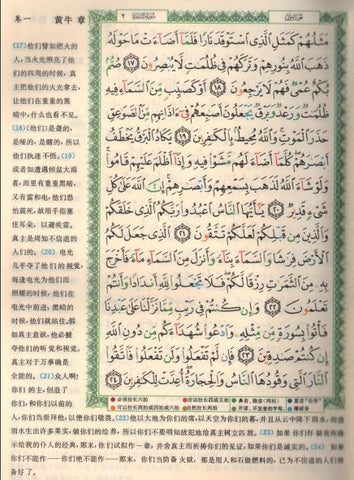 一 卷 黄牛 章
مَثَلُهُمْ كَمَثَلِ ٱلَّذِى ٱسْتَوْقَدَ نَارًا فَلَمَّآ أَضَآءَتْ مَا حَوْلَهُۥ
ذَهَبَ ٱللَّهُ بِنُورِهِمْ وَتَرَكَهُمْ فِى ظُلُمَٰتٍ لَّا يُبْصِرُونَ ١٧ صُمٌّۢ
بُكْمٌ عُمْىٌ فَهُمْ لَا يَرْجِعُونَ ١٨ أَوْ كَصَيِّبٍ مِّنَ ٱلسَّمَآءِ فِيهِ
ظُلُمَٰتٌ وَرَعْدٌ وَبَرْقٌ يَجْعَلُونَ أَصَٰبِعَهُمْ فِىٓ ءَاذَانِهِم مِّنَ ٱلصَّوَٰعِقِ
حَذَرَ ٱلْمَوْتِ وَٱللَّهُ مُحِيطٌۢ بِٱلْكَٰفِرِينَ ١٩ يَكَادُ ٱلْبَرْقُ يَخْطَفُ
أَبْصَٰرَهُمْ كُلَّمَآ أَضَآءَ لَهُم مَّشَوْا۟ فِيهِ وَإِذَآ أَظْلَمَ عَلَيْهِمْ قَامُوا۟
وَلَوْ شَآءَ ٱللَّهُ لَذَهَبَ بِسَمْعِهِمْ وَأَبْصَٰرِهِمْ إِنَّ ٱللَّهَ عَلَىٰ كُلِّ
شَىْءٍ قَدِيرٌ ٢٠ يَٰٓأَيُّهَا ٱلنَّاسُ ٱعْبُدُوا۟ رَبَّكُمُ ٱلَّذِى خَلَقَكُمْ
وَٱلَّذِينَ مِن قَبْلِكُمْ لَعَلَّكُمْ تَتَّقُونَ ٢١ ٱلَّذِى جَعَلَ لَكُمُ
ٱلْأَرْضَ فِرَٰشًا وَٱلسَّمَآءَ بِنَآءً وَأَنزَلَ مِنَ ٱلسَّمَآءِ مَآءً فَأَخْرَجَ
بِهِۦ مِنَ ٱلثَّمَرَٰتِ رِزْقًا لَّكُمْ فَلَا تَجْعَلُوا۟ لِلَّهِ أَندَادًا وَأَنتُمْ
تَعْلَمُونَ ٢٢ وَإِن كُنتُمْ فِى رَيْبٍ مِّمَّا نَزَّلْنَا عَلَىٰ عَبْدِنَا
فَأْتُوا۟ بِسُورَةٍ مِّن مِّثْلِهِۦ وَٱدْعُوا۟ شُهَدَآءَكُم مِّن دُونِ ٱللَّهِ
إِن كُنتُمْ صَٰدِقِينَ ٢٣ فَإِن لَّمْ تَفْعَلُوا۟ وَلَن تَفْعَلُوا۟ فَٱتَّقُوا۟
ٱلنَّارَ ٱلَّتِى وَقُودُهَا ٱلنَّاسُ وَٱلْحِجَارَةُ أُعِدَّتْ لِلْكَٰفِرِينَ ٢٤
(17)他们譬如燃火的
人，当火光照亮了他
们的四周的时候，真
主把他们的火光拿去，
让他们在重重的黑
暗中，什么也看不见。
(18)(他们)是聋的，
是哑的，是瞎的，所以
他们执迷不悟。(19)
或者如遭遇倾盆大雨
者，雨里有重重黑暗，
又有雷和电，他们恐
怕震死，故用手指塞
住耳朵，以避疾雷。
真主是周知不信道的
人们的。(20) 电光
几乎夺了他们的视觉，
每逢电光为他们而
照耀的时候，他们在
电光中前进；黑暗的
时候，他们就站住。假
如真主意欲，他必褫
夺他们的听觉和视觉。
真主对于万事确是
全能的。(21)众人啊！
你们的主，创造了
你们，和你们以前的
人，你们当崇拜他，以便你们敬畏。(22)他以大地为你们的席，以天空为你们的幕，并且从云中降下雨水，而借
雨水生出许多果实，做你们的给养，所以你们不要明知故犯地给真主树立匹敌。(23) 如果你们怀疑我所降
示给我的仆人的经典，那末，你们试拟作一章，并舍真主而祈祷你们的见证，如果你们是诚实的。(24) 如果
你们不能作——你们绝不能作——那末，你们当防备火狱，那是用人和石做燃料的，已为不信道的人们预
备好了。
●必须拉长六拍 ●应该拉长四或五拍 ●鼻音、隐读(两拍)
●可以拉长两拍或四拍或六拍 ●自然拉长两拍 ●并读、不发音的字母 ●爆破音